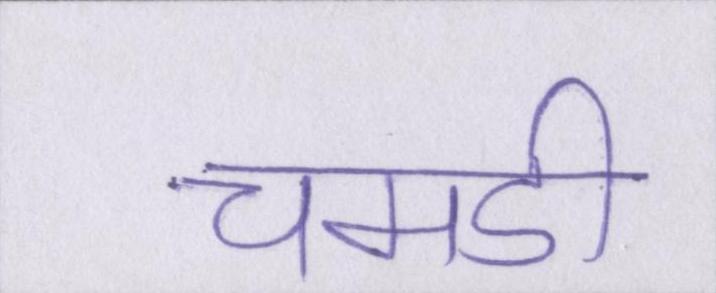 चमडी